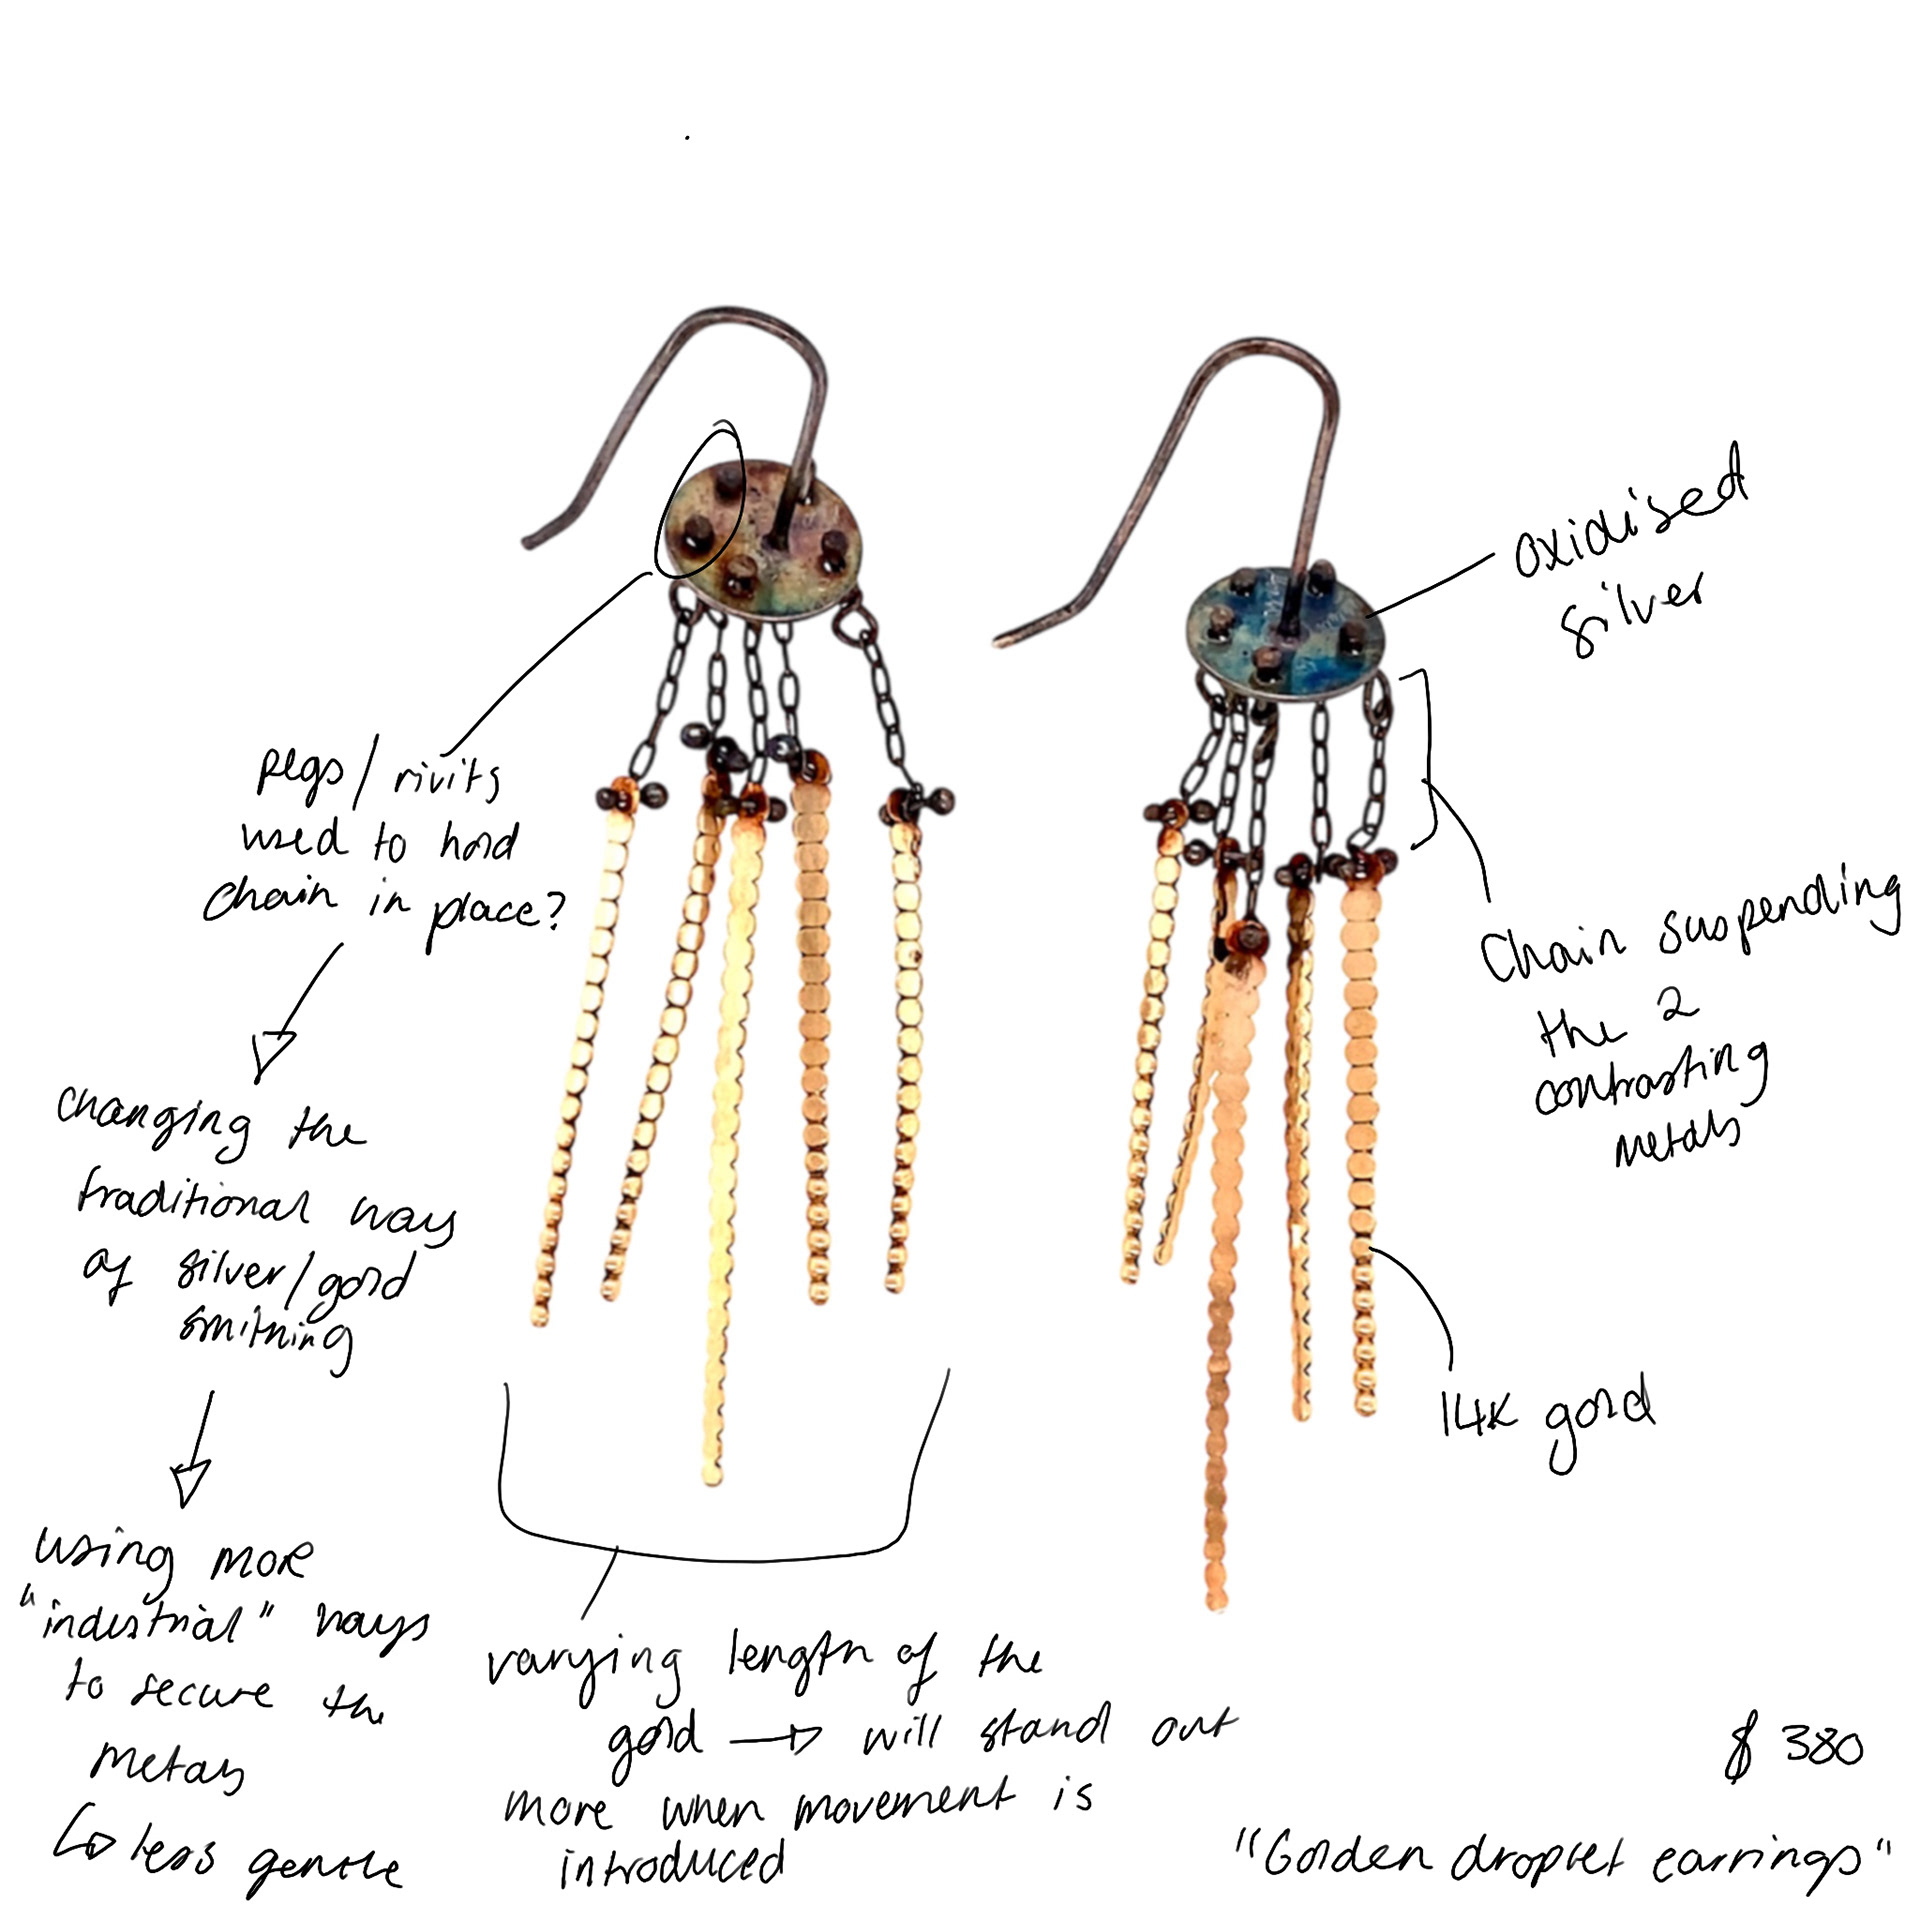 oxidised
silver
pegs/rivits
used to hold
chain in place?
changing the
traditional ways
of silver/gold
smithing
using more
"industrial" ways
to secure the
metals
↳ less gentle
Chain suspending
the 2
contrasting
metals
14K gold
varying length of the
gold → will stand out
more when movement is
introduced
$380
"Golden droplet earrings"